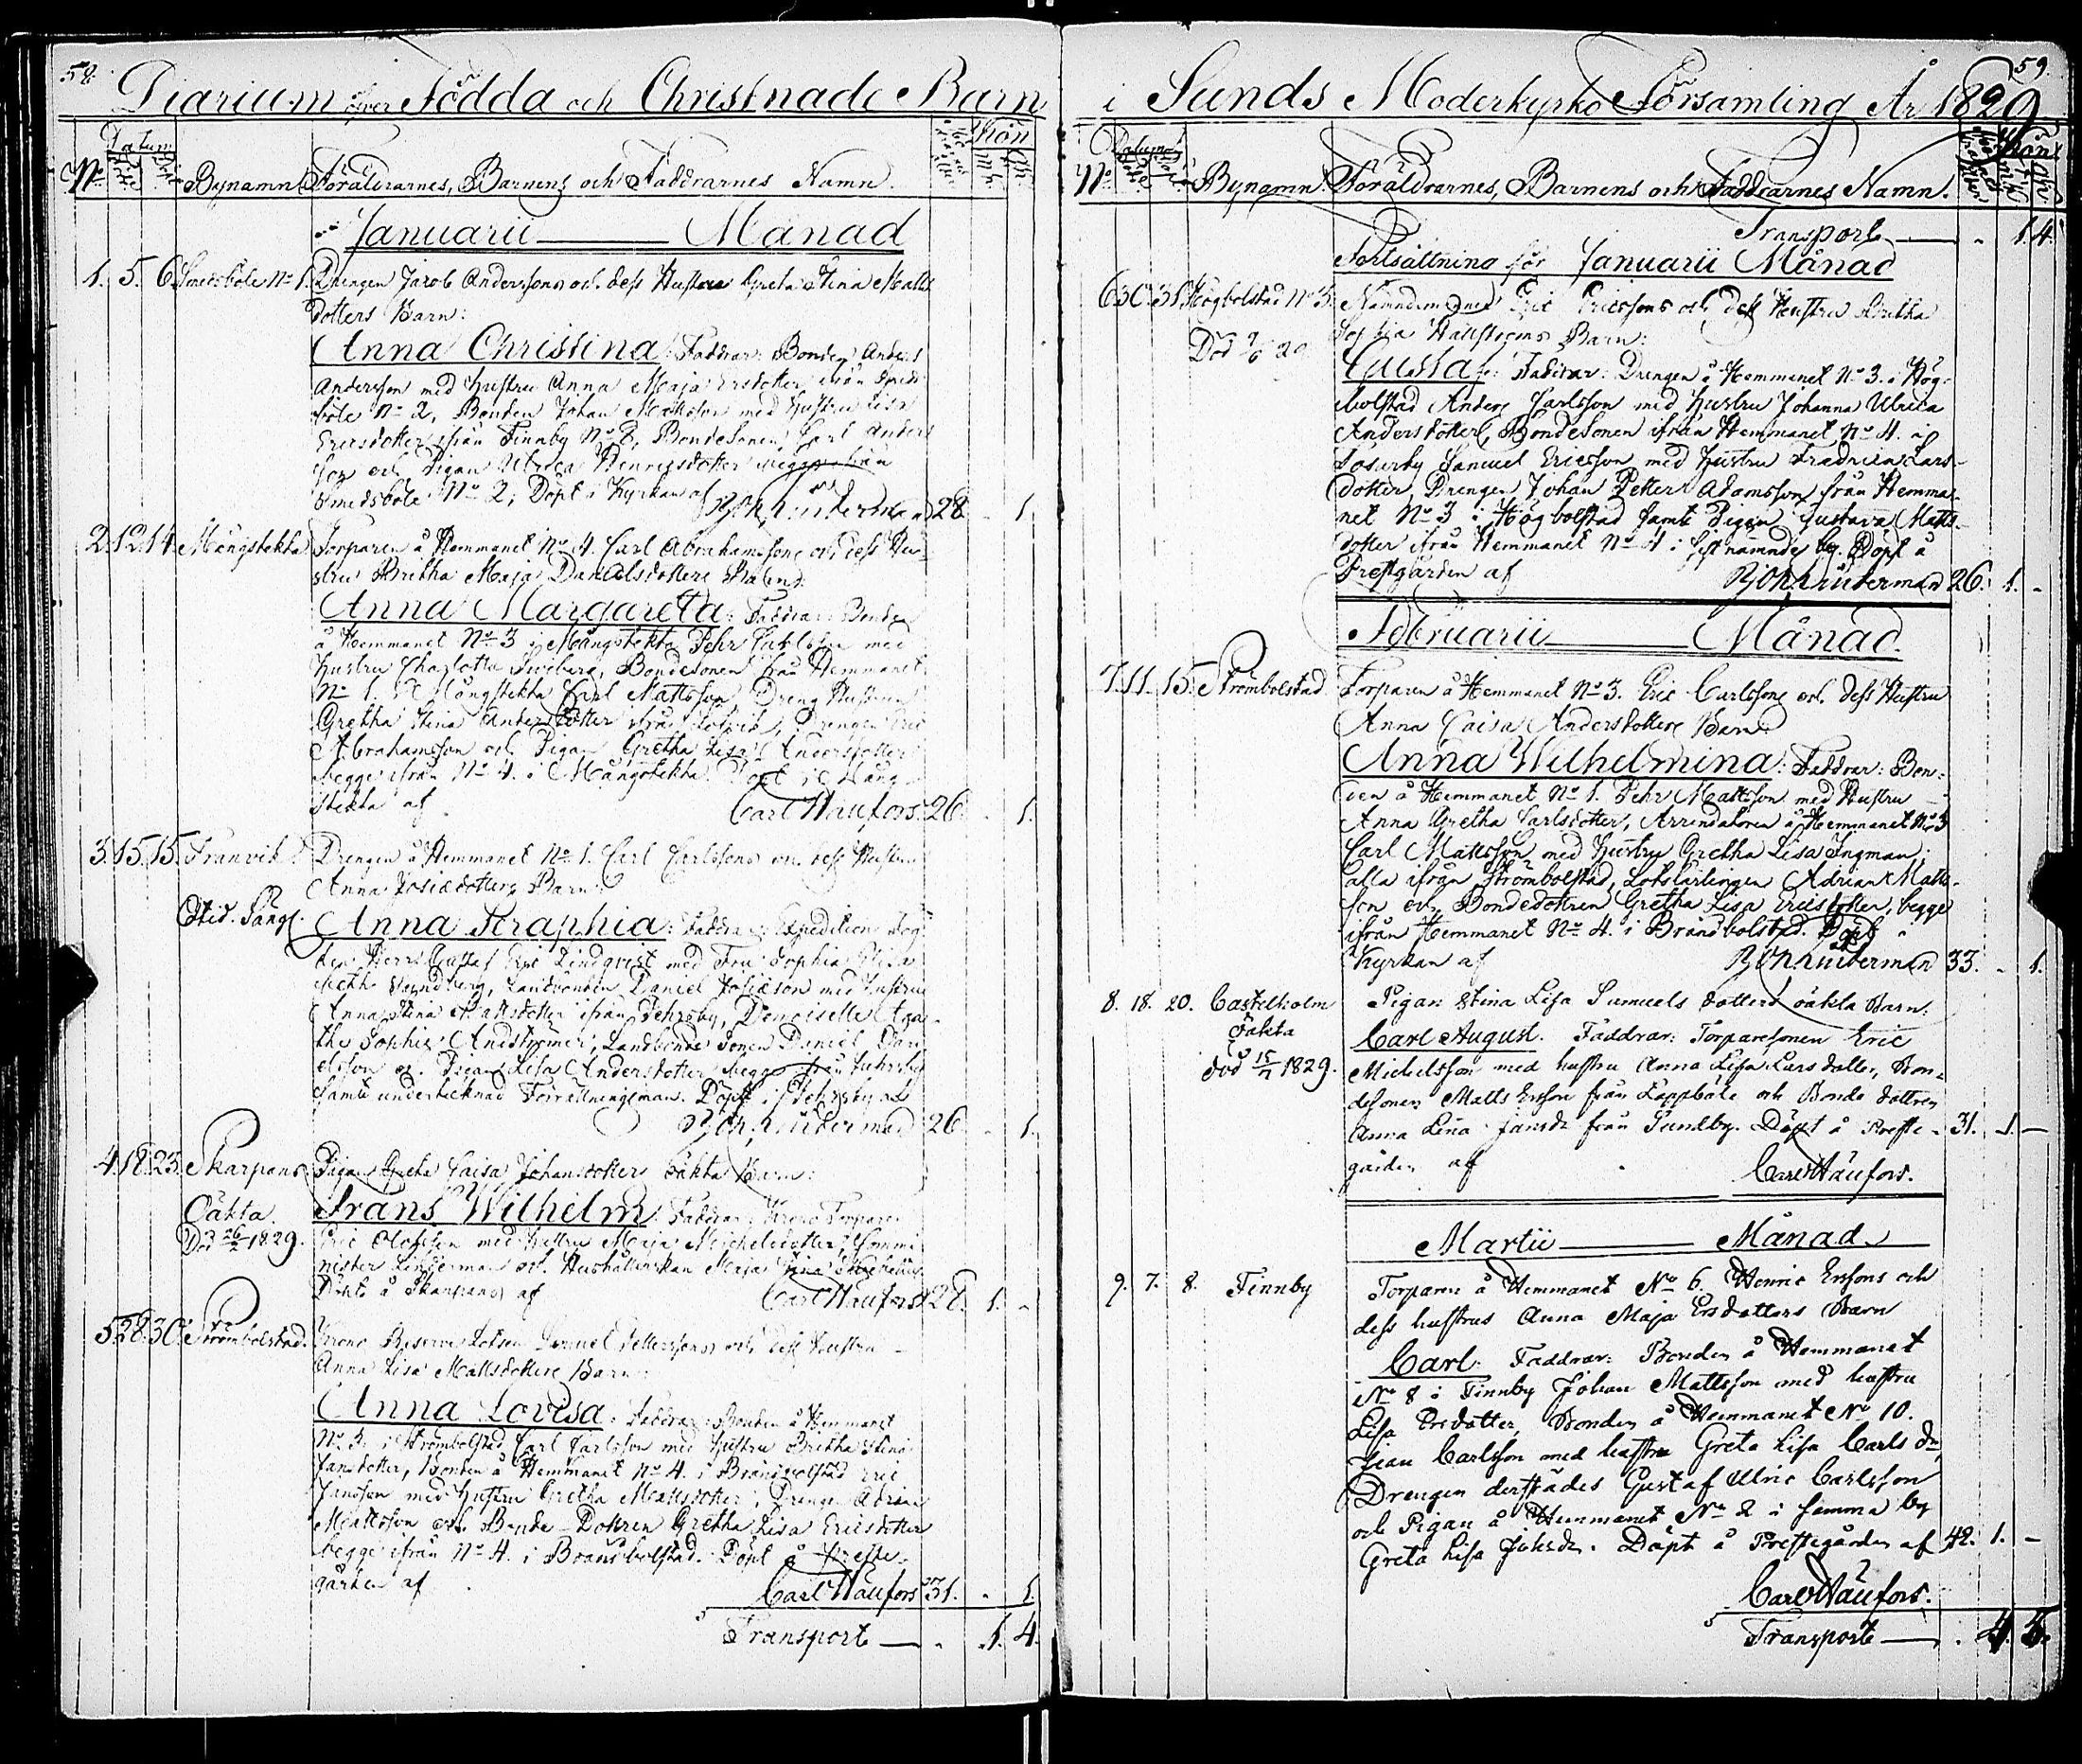 58.
Diarium öfver Födda och Christnade Barn
Datum
Kön
No Bynamn Föräldrarnes, Barnens och Faddrarnes Namn.
Januarii Månad
1. 5. 6. Smedsböle No 1. Drengen Jacob Anderssons och dess Hustru Greta Stina Matts
dotters Barn:
Anna Christina: Faddrar: Bonden Anders
Andersson med hustru Anna Maja Ersdotter ifrån Smeds
böle No 2, Bonden Johan Mattsson med Hustru Lisa
Ericsdotter ifrån Finnby No 8, Bondesonen Carl Anders
son och Pigan Ulrica Henricsdotter begge ifrån
Smedsböle No 2; Döpt i Kyrkan af Joh. Linderman 28. - 1.
2. 12. 14. Mångstekta Torparen å Hemmanet No 4. Carl Abrahamssons och dess Hu-
stru Bretha Maja Danielsdotters Barn:
Anna Margareta: Faddrar: Bonden
å Hemmanet No 3 i Mångstekta Pehr Carlsson med
hustru Charlotta, Bondesonen från Hemmanet
No 1. i Mångstekta Carl Mattsson, Dreng Hustrun
Gretha Stina Andersdotter ifrån, Drengen Eric
Abrahamsson och Pigan Gretha Lisa Andersdotter
begge ifrån No 4. i Mångstekta. Döpt i Mång-
stekta af Carl Häufors. 26. - 1.
3. 15. 15. Tranvik Drengen å Hemmanet No 1. Carl Carlssons och dess Hustru
Anna Josiædotters Barn:
Anna Seraphia: Faddrar: Expedition Fog
den Herr Gustaf Eric Lindqvist med Fru Sophia Elisa
beth, Landbonden Daniel Josiæson med Hustru
Anna Stina Mattsdotter ifrån Jehrsby, Demoiselle Aga-
tha Sophia, Landbonde Sonen Daniel Dani
elsson och Pigan Lisa Andersdotter begge från Juhrsby
samt undertecknad Förrättningsman. Döpt i Jehrsby af
Joh. Linderman 26. - 1.
4. 18. 23. Skarpans Pigan Greta Caisa Johansdotters oäkta Barn:
Oäkta. Frans Wilhelm: Faddrar: Krono Torparen
Död 26/2 1829. Eric Olofsson med hustru Maja Michelsdotter, Commi-
nister Linderman och Hushållerskan Maja Stina
Döpt å Skarpans af Carl Häufors 28. 1. -
5. 28. 30. Strömbolstad. Krono Reserve Lotsen Samuel Petterssons och dess Hustru
Anna Lisa Mattsdotters Barn:
Anna Lovisa: Faddrar: Bonden å Hemmanet
No 3. i Strömbolstad Carl Carlsson med hustru Bretha Stina
Jansdotter, Bonden å Hemmanet No 4. i Brändbolstad Eric
Jansson med Hustru Gretha Mattsdotter, Drengen Adrian
Mattsson och Bonde-Dottren Gretha Lisa Ericsdotter
begge ifrån No 4. i Brändbolstad. Döpt å Preste-
gården af Carl Häufors 31. - 1.
Transport - 1. 4.
59.
i Sunds Moderkyrko Församling År 1829
Datum
Kön
No Bynamn. Föräldrarnes, Barnens och Faddrarnes Namn.
Transport - 1. 4.
Fortsättning för Januarii Månad
6. 30. 31. Högbolstad No 3. Nämndemannen Eric Ericssons och dess Hustru Bretha
Sophia Hallströms Barn:
Död 9/6 29 Gustaf: Faddrar: Drengen å Hemmanet No 3. i Hög-
bolstad Anders Carlsson med hustru Johanna Ulrica
Andersdotter, Bondesonen ifrån Hemmanet No 4. i
Sosurby Samuel Ericsson med hustru Fredrica Lars-
dotter, Drengen Johan Petter Adamsson från Hemma-
net No 3 i Högbolstad samt Pigan Gustava Matts-
dotter ifrån Hemmanet No 4 i sistnämnde by. Döpt å
Prestgården af Joh. Linderman 26. 1. -
Februarii Månad.
7. 11. 15. Strömbolstad Torparen å Hemmanet No 3. Eric Carlssons och dess Hustru
Anna Caisa Andersdotters Barn:
Anna Wilhelmina: Faddrar: Bon-
den å Hemmanet No 1. Pehr Mattsson med Hustru
Anna Gretha Carlsdotter, Arrendatoren å Hemmanet No 3
Carl Mattsson med hustru Gretha Lisa Ingman,
alla ifrån Strömbolstad, Lotslärlingen Adrian Matts-
son och Bondedottren Gretha Lisa Ericsdotter, begge
ifrån Hemmanet No 4. i Brändbolstad. Döpt i
Kyrkan af Joh. Linderman 33. - 1.
8. 18. 20. Castelholm Pigan Stina Lisa Samuels dotters oäkta Barn:
Oäkta Carl August. Faddrar: Torparesonen Eric
död 15/7 1829. Michelsson med hustru Anna Lisa Larsdotter, Bon-
desonen Matts Ersson från Lappböle och Bonde dottren
Anna Lena Jansdr från Sundby. Döpt å Preste- 31. 1. -
gården af Carl Häufors.
Martii Månad.
9. 7. 8. Finnby Torparen å Hemmanet No 6. Henric Erssons och
dess hustrus Anna Maja Ersdotters Barn
Carl: Faddrar: Bonden å Hemmanet
No 8 i Finnby Johan Mattsson med hustru
Lisa Ersdotter, Bonden å Hemmanet No 10.
Jean Carlsson med hustru Greta Lisa Carls dr,
Drengen derstädes Gustaf Ulric Carlsson
och Pigan å Hemmanet No 2 i samma by
Greta Lisa Johsdr. Döpt å Prestegården af 42. 1. -
Carl Häufors.
Transport - 4. 5.